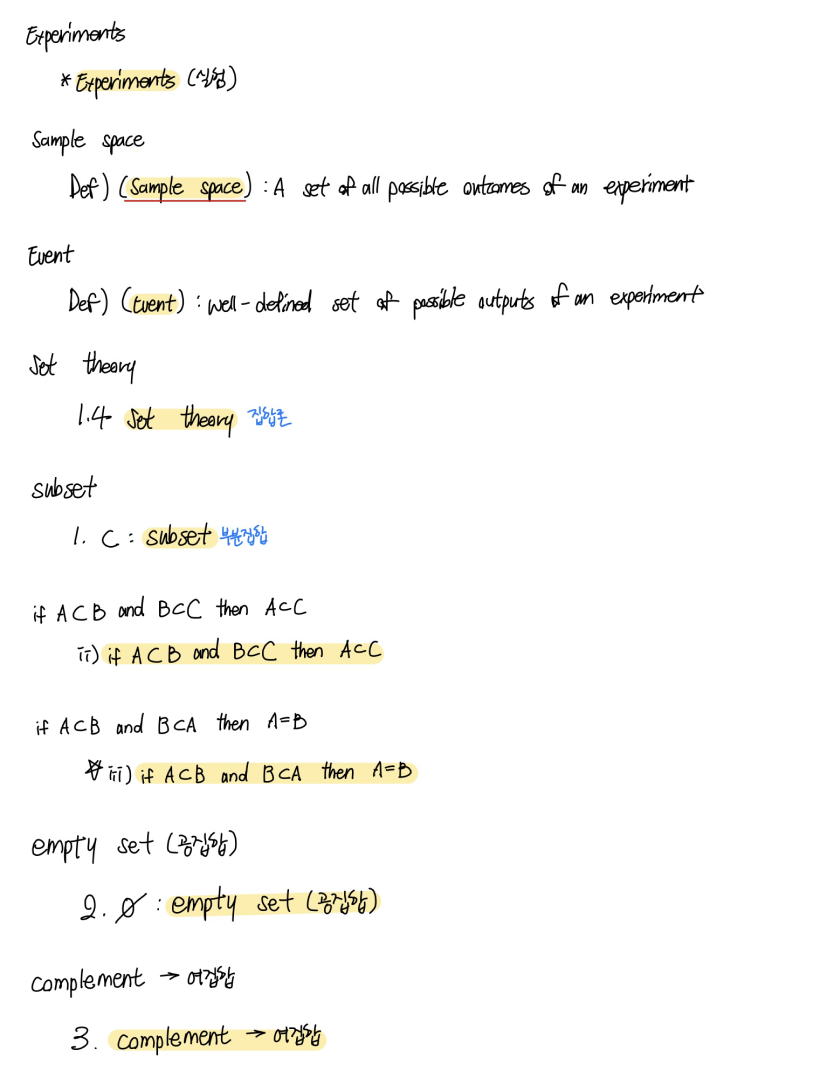 Experiments
* Experiments (실험)
Sample space
Def) (Sample space) : A set of all possible outcomes of an experiment
Event
Def) (Event) : well-defined set of possible outputs of an experiment
Set theory
1.4 Set theory 집합론
subset
1. ⊂ : subset 부분집합
if A⊂B and B⊂C then A⊂C
ii) if A⊂B and B⊂C then A⊂C
if A⊂B and B⊂A then A=B
☆ iii) if A⊂B and B⊂A then A=B
empty set (공집합)
2. ∅ : empty set (공집합)
complement → 여집합
3. complement → 여집합